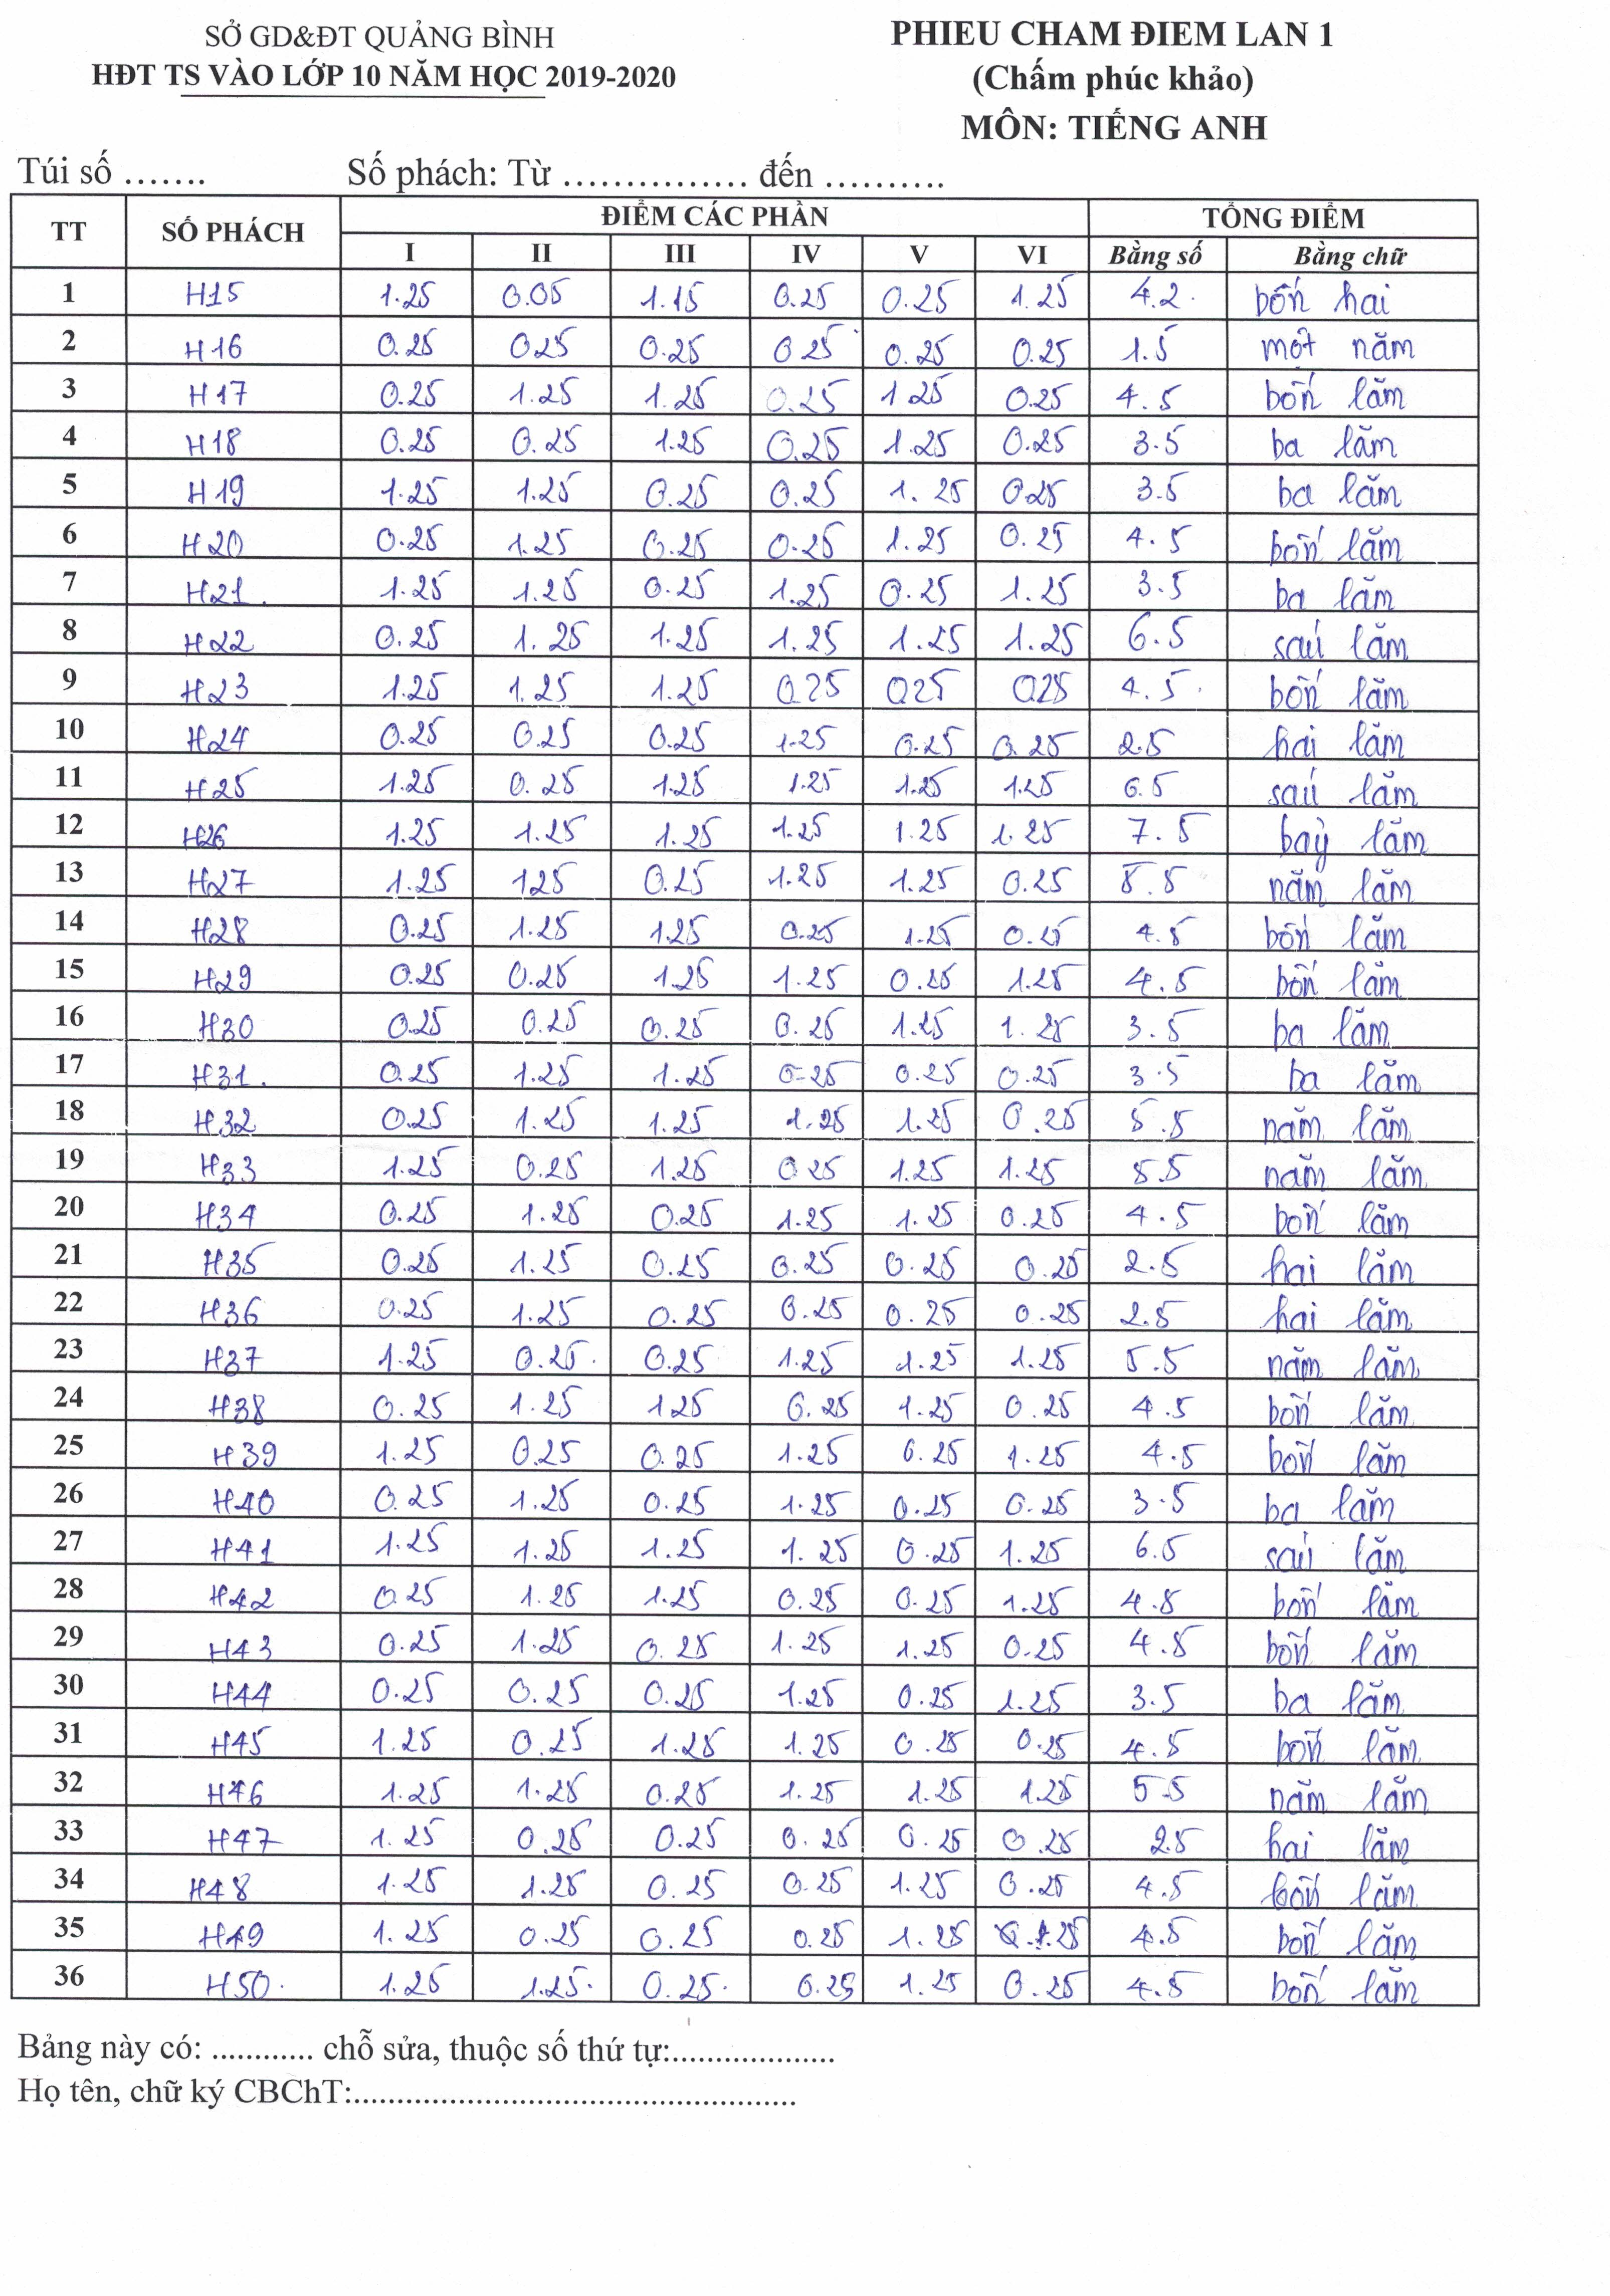 SỞ GD&ĐT QUẢNG BÌNH
HĐT TS VÀO LỚP 10 NĂM HỌC 2019-2020
PHIEU CHAM ĐIEM LAN 1
(Chấm phúc khảo)
MÔN: TIẾNG ANH
Túi số ....... Số phách: Từ ............... đến ..........
TT SỐ PHÁCH ĐIỂM CÁC PHẦN TỔNG ĐIỂM
I II III IV V VI Bằng số Bằng chữ
1 H15 1.25 0.05 1.15 0.25 0.25 1.25 4.2. bốn hai
2 H16 0.25 025 0.25 0 25 0.25 0.25 1.5 một năm
3 H17 0.25 1.25 1.25 0.25 1 25 0.25 4.5 bốn lăm
4 H18 0.25 0.25 1.25 0.25 1.25 0.25 3.5 ba lăm
5 H19 1.25 1.25 0.25 0.25 1.25 0.25 3.5 ba lăm
6 H20 0.25 1.25 0.25 0.25 1.25 0.25 4.5 bốn lăm
7 H21. 1.25 1.25 0.25 1.25 0.25 1.25 3.5 ba lăm
8 H22 0.25 1.25 1.25 1.25 1.25 1.25 6.5 sáu lăm
9 H23 1.25 1.25 1.25 025 025 025 4.5. bốn lăm
10 H24 0.25 0.25 0.25 1.25 0.25 0.25 2.5 hai lăm
11 H25 1.25 0.25 1.25 1.25 1.25 1.25 6.5 sáu lăm
12 H26 1.25 1.25 1.25 1.25 1.25 1.25 7.5 bảy lăm
13 H27 1.25 125 0.25 1.25 1.25 0.25 5.5 năm lăm
14 H28 0.25 1.25 1.25 0.25 1.25 0.25 4.5 bốn lăm
15 H29 0.25 0.25 1.25 1.25 0.25 1.25 4.5 bốn lăm
16 H30 0.25 0.25 0.25 0.25 1.25 1.25 3.5 ba lăm
17 H31. 0.25 1.25 1.25 0.25 0.25 0.25 3.5 ba lăm
18 H32 0.25 1.25 1.25 1.25 1.25 0.25 5.5 năm lăm
19 H33 1.25 0.25 1.25 0 25 1.25 1.25 5.5 năm lăm
20 H34 0.25 1.25 0.25 1.25 1.25 0.25 4.5 bốn lăm
21 H35 0.25 1.25 0.25 0.25 0.25 0.25 2.5 hai lăm
22 H36 0.25 1.25 0.25 0.25 0.25 0.25 2.5 hai lăm
23 H37 1.25 0.25. 0.25 1.25 1.25 1.25 5.5 năm lăm
24 H38 0.25 1.25 125 0.25 1.25 0.25 4.5 bốn lăm
25 H39 1.25 0.25 0.25 1.25 0.25 1.25 4.5 bốn lăm
26 H40 0.25 1.25 0.25 1.25 0.25 0.25 3.5 ba lăm
27 H41 1.25 1.25 1.25 1.25 0.25 1.25 6.5 sáu lăm
28 H42 0.25 1.25 1.25 0.25 0.25 1.25 4.5 bốn lăm
29 H43 0.25 1.25 0.25 1.25 1.25 0.25 4.5 bốn lăm
30 H44 0.25 0.25 0.25 1.25 0.25 1.25 3.5 ba lăm
31 H45 1.25 0.25 1.25 1.25 0.25 0.25 4.5 bốn lăm
32 H46 1.25 1.25 0.25 1.25 1.25 1.25 5.5 năm lăm
33 H47 1.25 0.25 0.25 0.25 0.25 0.25 2.5 hai lăm
34 H48 1.25 1.25 0.25 0.25 1.25 0.25 4.5 bốn lăm
35 H49 1.25 0.25 0.25 0.25 1.25 1.25 4.5 bốn lăm
36 H50. 1.25 1.25. 0.25. 0.25 1.25 0.25 4.5 bốn lăm
Bảng này có: ............ chỗ sửa, thuộc số thứ tự:...................
Họ tên, chữ ký CBChT:....................................................